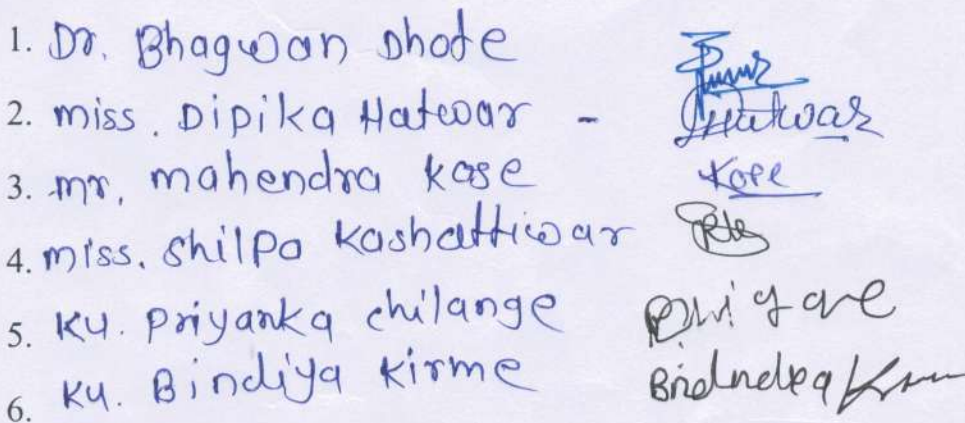 1. Dr. Bhagwan Dhote
2. miss. Dipika Hatwar - Dhatwar
3. mr. mahendra kose Kose
4. miss. Shilpa Kashattiwar
5. Ku. Priyanka chilange
6. Ku. Bindiya Kirme